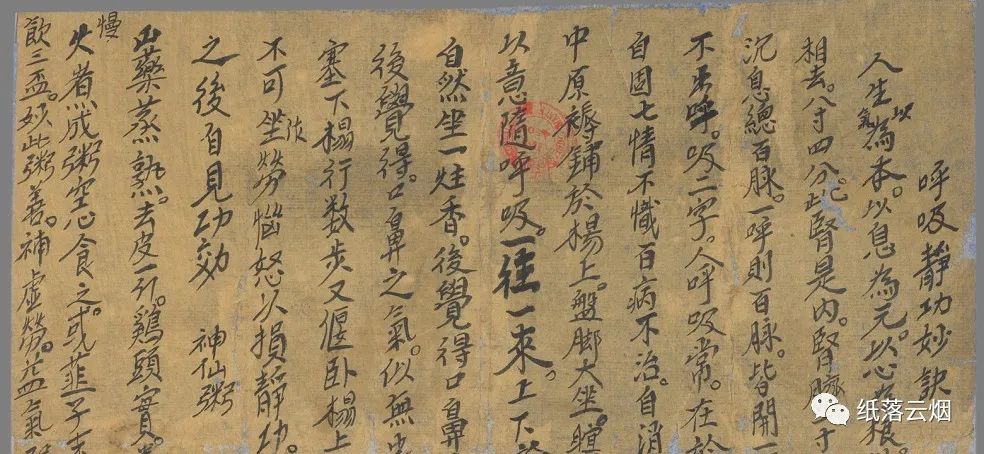 呼吸靜功妙訣
人生以氣為本。以息為元。以心為根
相去。八寸四分。此腎是內。腎臍
沉息總百脉。一呼則百脉。皆開一
不出呼。吸二字。人呼吸常。在於
自固七情不熾百病不治。自消
中原褥鋪於榻上。盤脚大坐。瞑
以意隨呼吸。一往一來。上下
自然坐一炷香。後覺得口鼻
後覺得。口鼻之氣。似無
塞下榻行数步又偃卧榻上
不可坐作勞惱怒以損靜功。
之後自見功効 神仙粥
山藥蒸熟。去皮一斤。鷄頭實。
慢火煮成粥空心食之。或韮子末
飲三盃。妙此粥善。補虛勞。益氣
纸落云烟